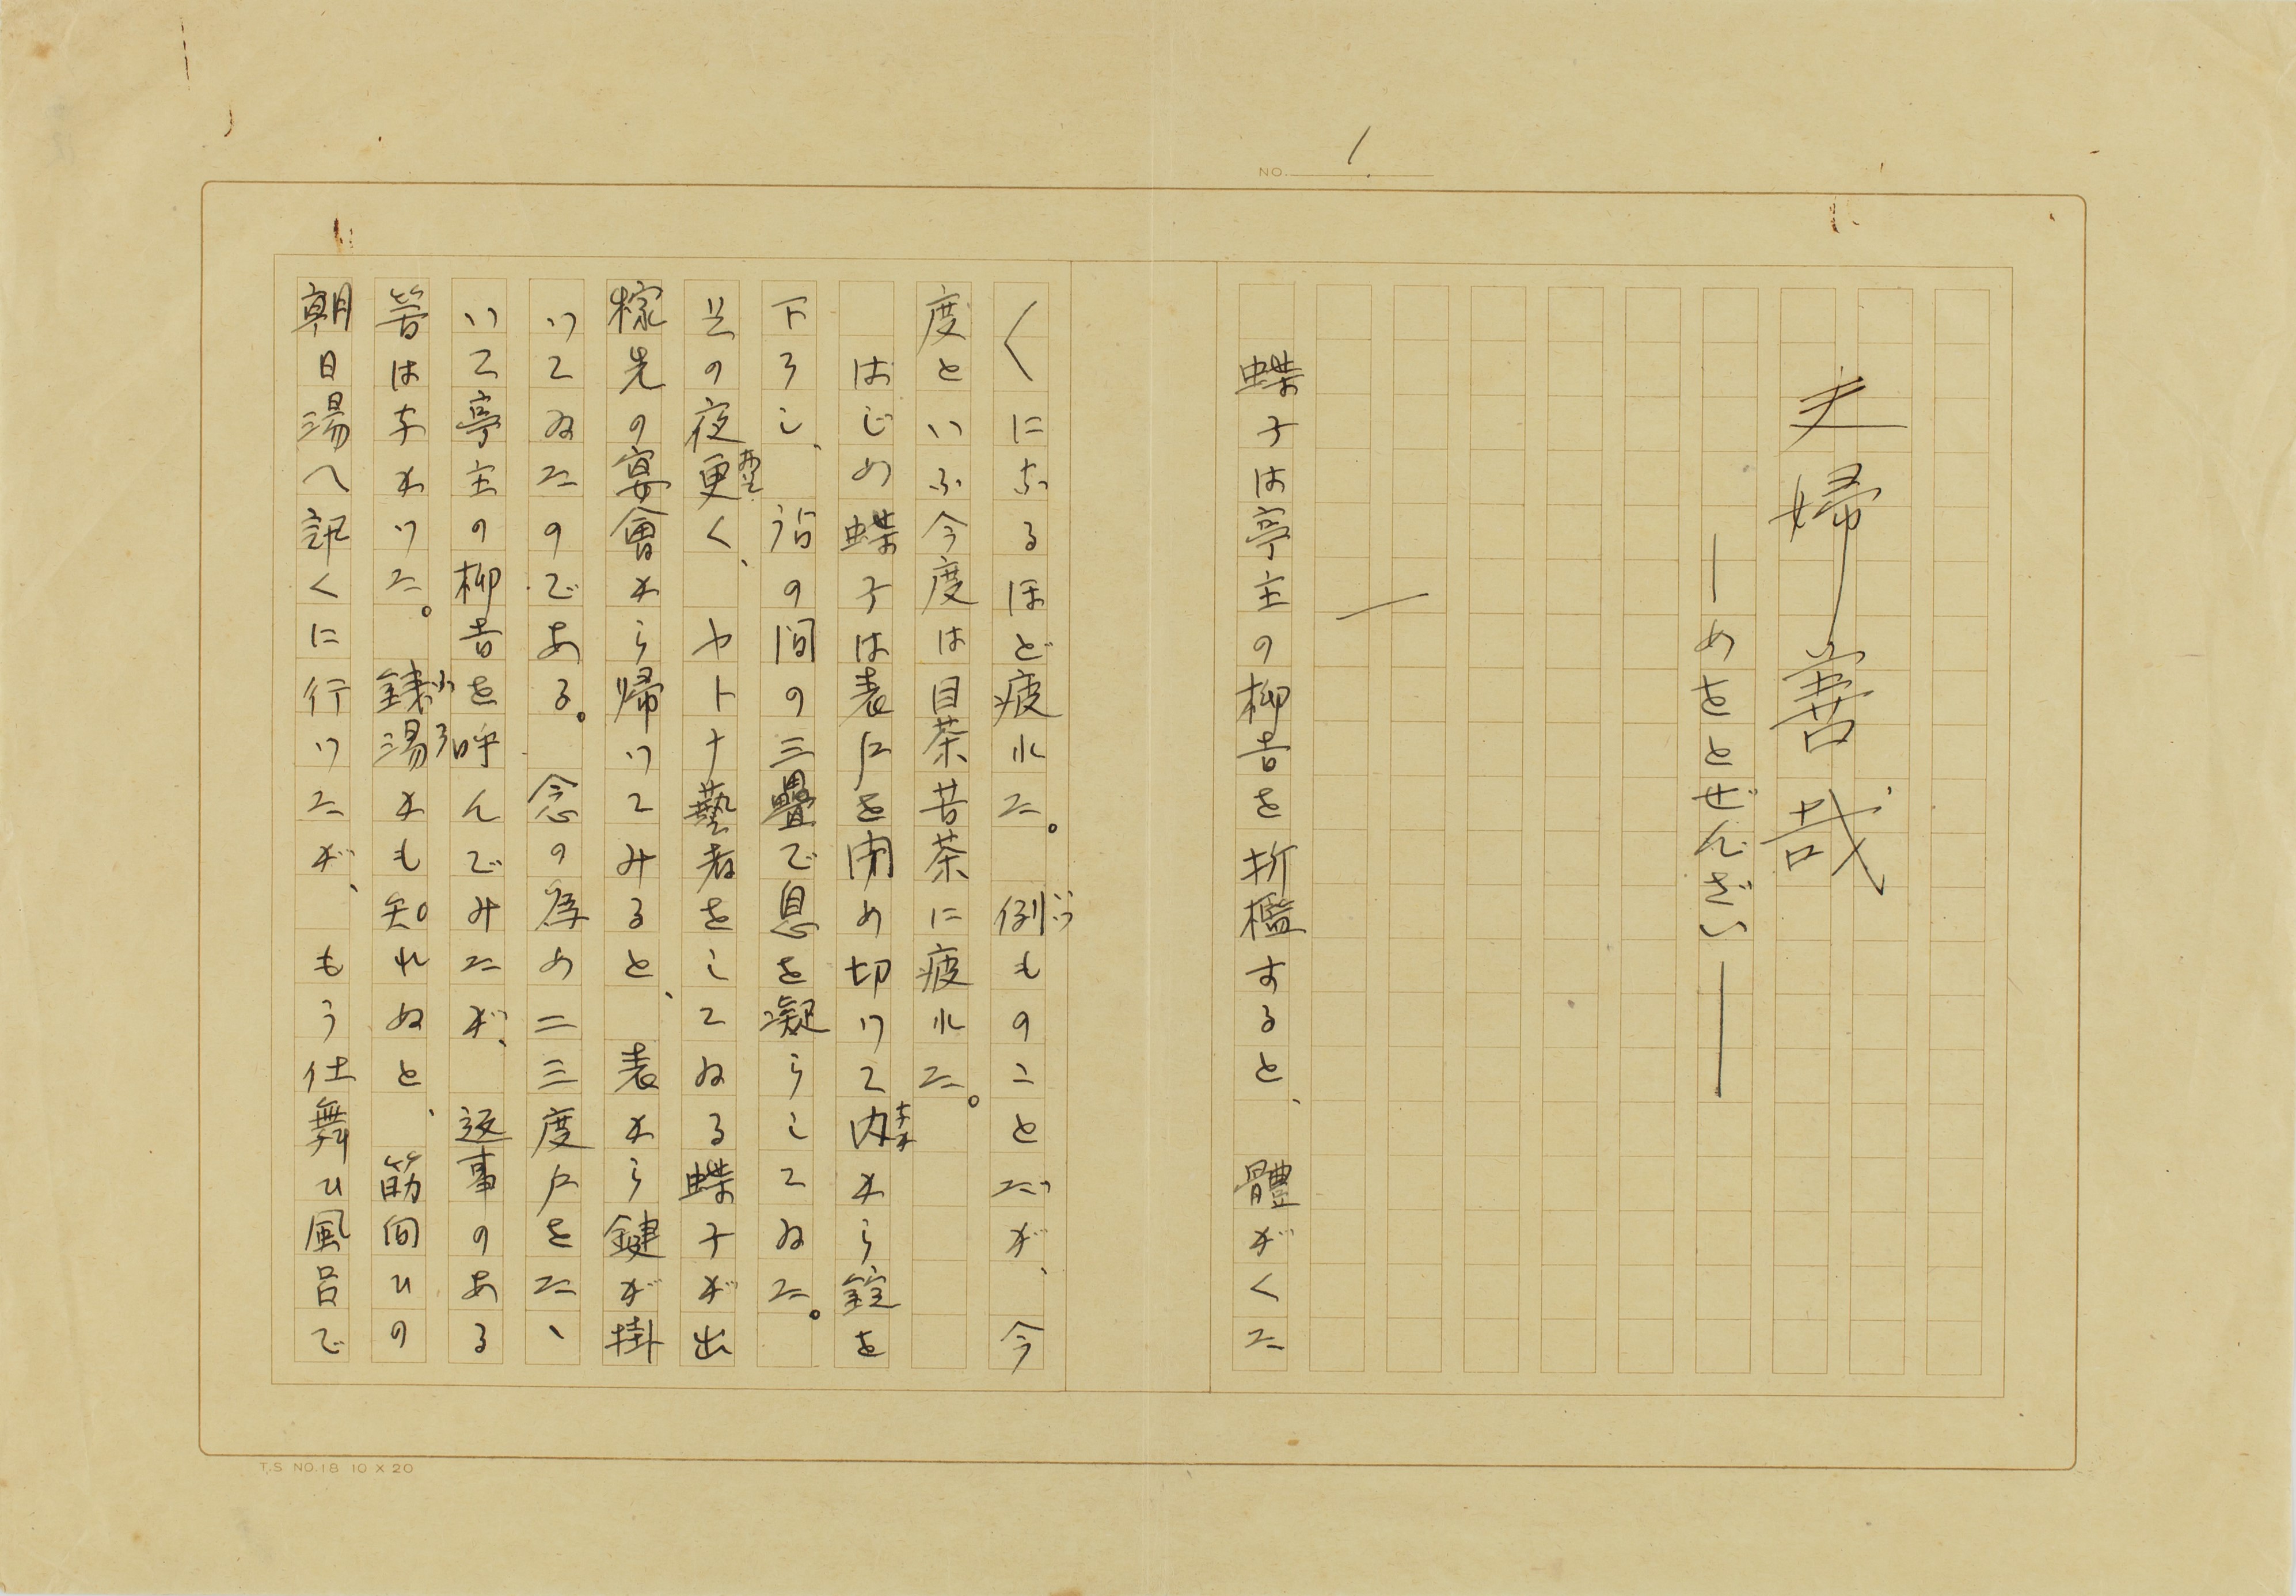 NO. 1
夫婦善哉
―めをとぜんざい――
一
蝶子は亭主の柳吉を折檻すると、體がくた
〱になるほど疲れた。例ものことだが、今
いつ
度といふ今度は目茶苦茶に疲れた。
はじめ蝶子は表戸を閉め切つて内から錠を
なか
下ろし、店の間の三疊で息を凝らしてゐた。
其の夜更く、ヤトナ藝者をしてゐる蝶子が出
おそ
稼先の宴會から帰つてみると、表から鍵が掛
つてゐたのである。念の為め二三度戸をたゝ
いて亭主の柳吉を呼んでみたが、返事のある
筈はなかつた。銭湯かも知れぬと、筋向ひの
ふろ
朝日湯へ訊くに行つたが、もう仕舞ひ風呂で
T.S NO.18 10×20